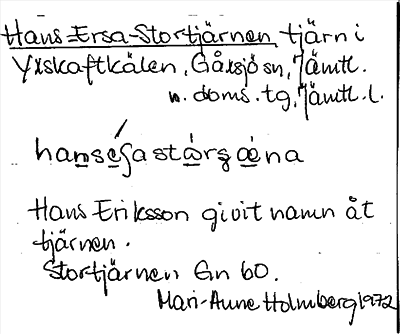 Hans-Ersa-Stortjärnen, tjärn i
Yxskaftkälen, Gåxsjö sn, Jämtl.
n. doms. tg, Jämtl. l.
Hans Eriksson givit namn åt
tjärnen.
Stortjärnen Gn 60.
Mari-Anne Holmberg 1972